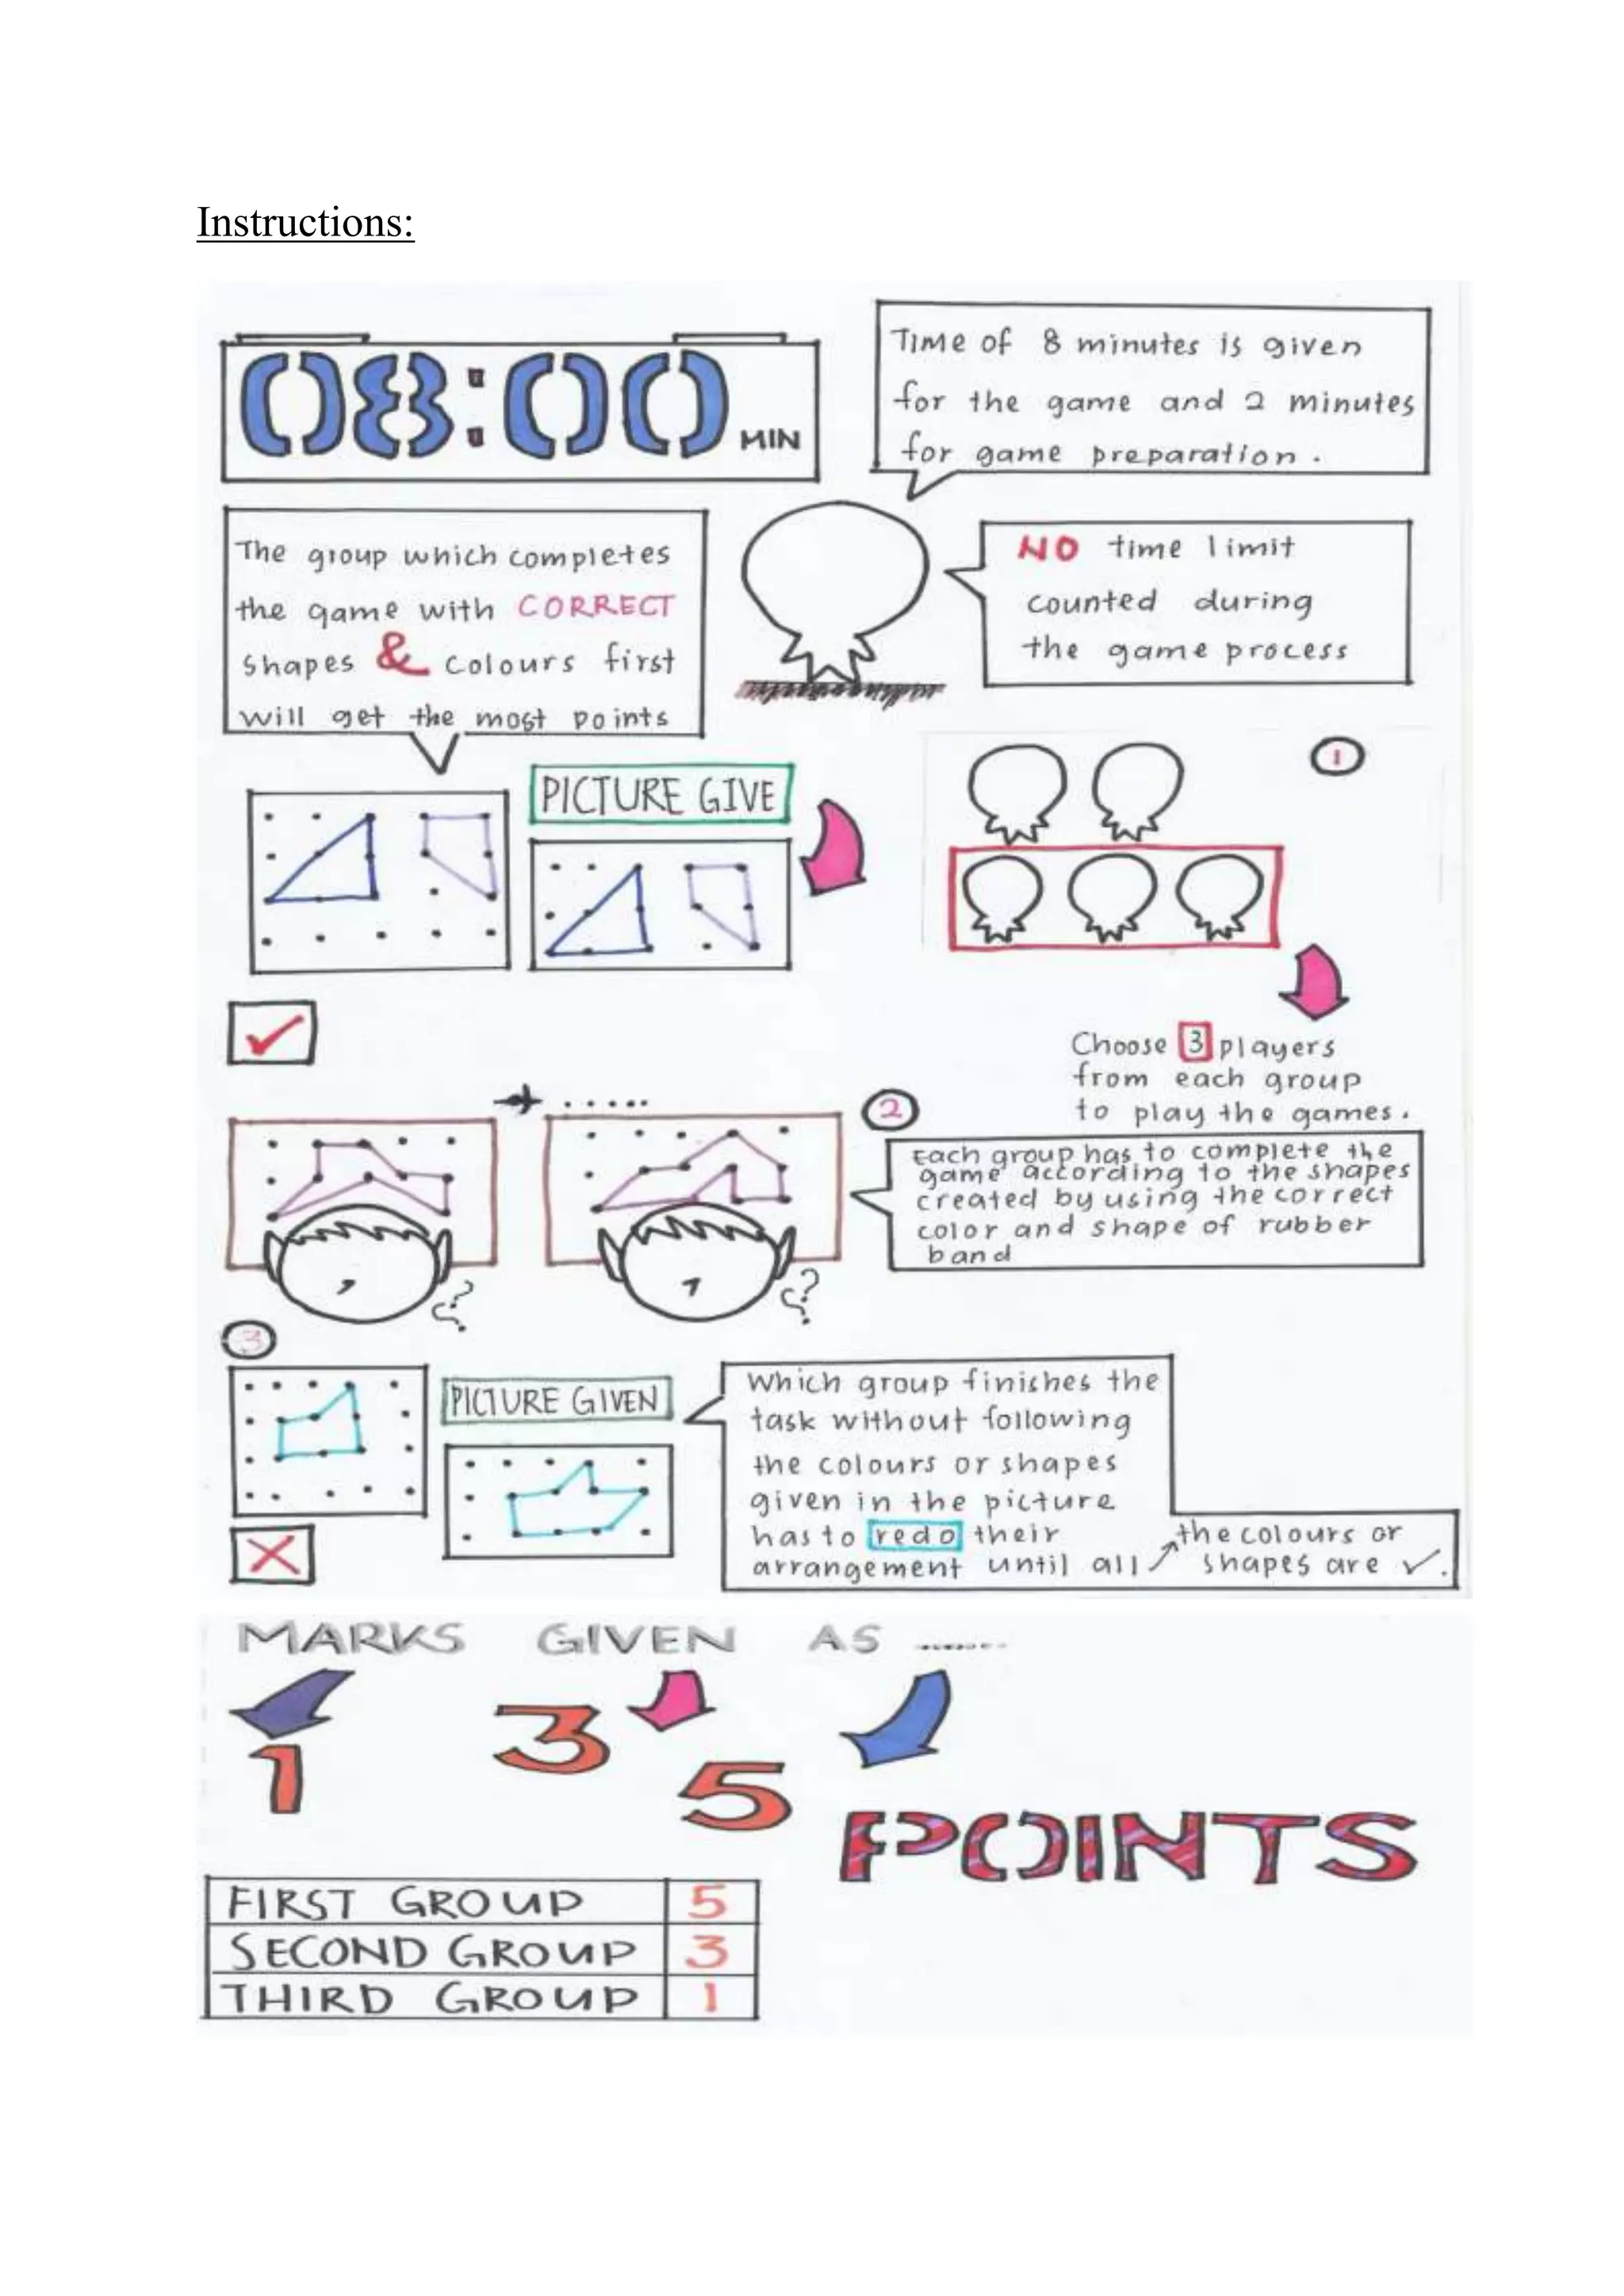 Instructions:
08:00 MIN
Time of 8 minutes is given
for the game and 2 minutes
for game preparation.
The group which completes
the game with CORRECT
shapes & colours first
will get the most points
NO time limit
counted during
the game process
PICTURE GIVE
1
Choose 3 players
from each group
to play the games.
2
Each group has to complete the
game according to the shapes
created by using the correct
color and shape of rubber
band
?
?
3
PICTURE GIVEN
Which group finishes the
task without following
the colours or shapes
given in the picture
has to redo their
arrangement until all
the colours or
shapes are ✓.
MARKS GIVEN AS .......
1
3
5
POINTS
FIRST GROUP 5
SECOND GROUP 3
THIRD GROUP 1